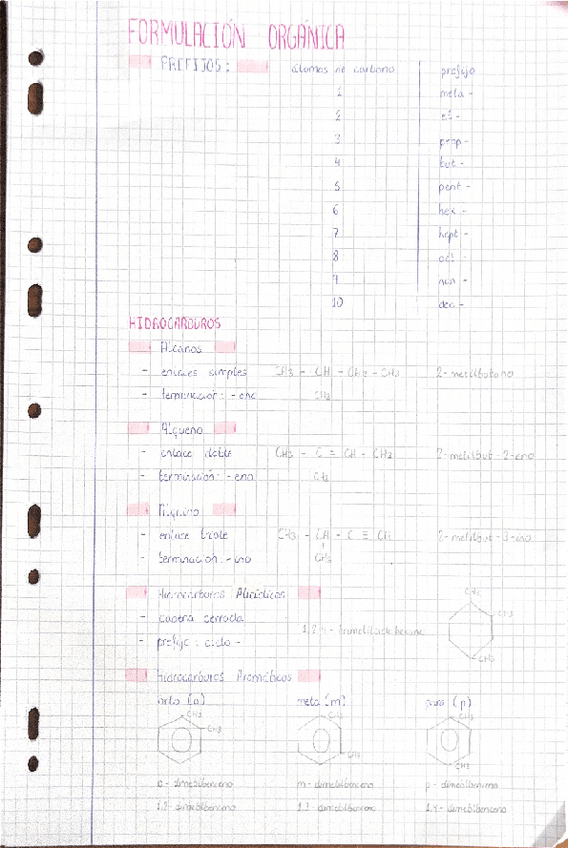 FORMULACIÓN ORGÁNICA
PREFIJOS: átomos de carbono prefijo
1 meta-
2 et-
3 prop-
4 but-
5 pent-
6 hex-
7 hept-
8 oct-
9 non-
10 dec-
HIDROCARBUROS
Alcanos
- enlaces simples CH3 - CH - CH2 - CH3 2-metilbutano
- terminación: -ano CH3
Alqueno
- enlace doble CH3 - C = CH - CH3 2-metilbut-2-eno
- terminación: -eno CH3
Alquino
- enlace triple CH3 - CH - C ≡ CH 2-metilbut-3-ino
- terminación: -ino CH3
Hidrocarburos Alicíclicos CH3
- cadena cerrada CH3
- prefijo: ciclo- 1,2,4-trimetilciclohexano
CH3
Hidrocarburos Aromáticos
orto (o) meta (m) para (p)
CH3 CH3 CH3
CH3 CH3 CH3
o-dimetilbenceno m-dimetilbenceno p-dimetilbenceno
1,2-dimetilbenceno 1,3-dimetilbenceno 1,4-dimetilbenceno